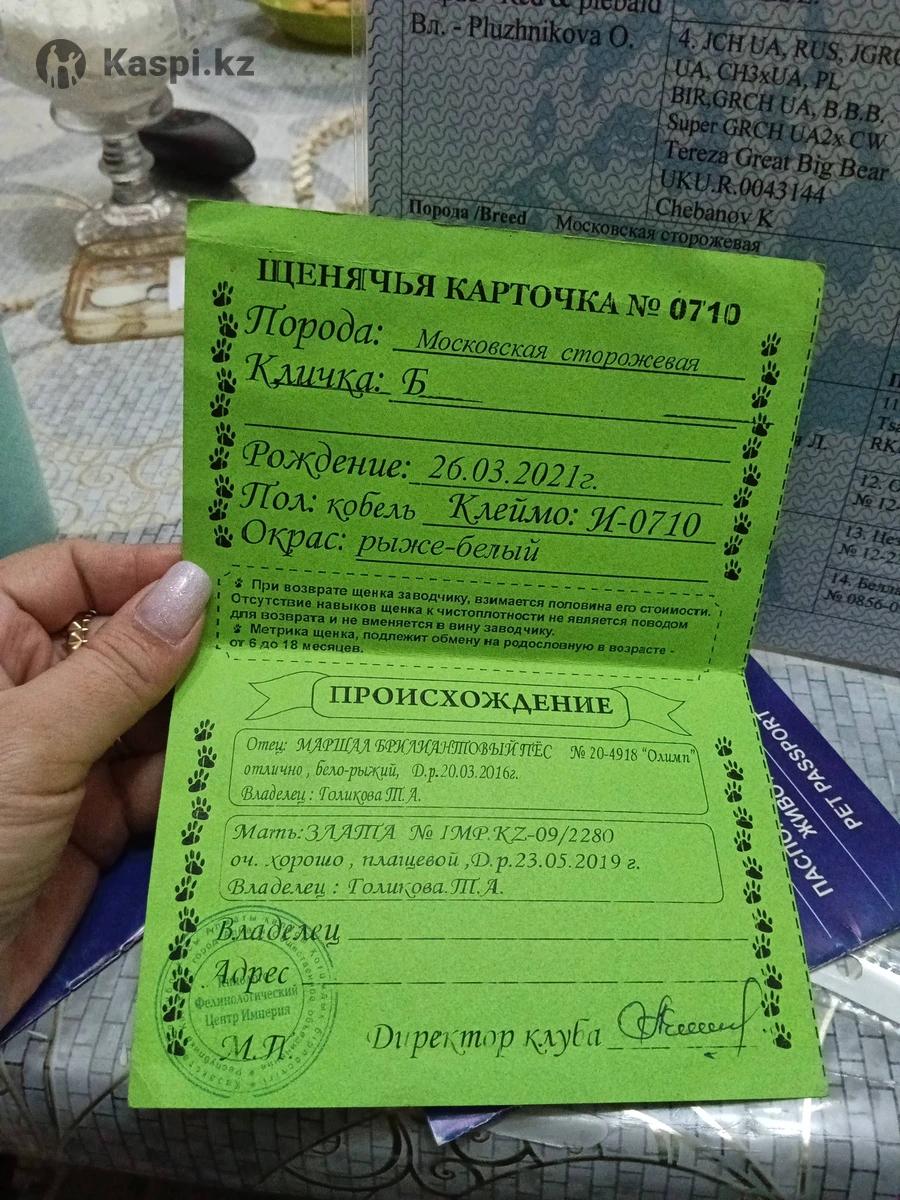 Kaspi.kz
Red & piebald
Вл. - Pluzhnikova O.
4. JCH UA, RUS, JGRC
UA, CH3xUA, PL
BIR.GRCH UA, B.B.B.
Super GRCH UA2x CW
Tereza Great Big Bear
UKU.R.0043144
Chebanov K
Порода /Breed Московская сторожевая
ЩЕНЯЧЬЯ КАРТОЧКА № 0710
Порода: Московская сторожевая
Кличка: Б
Рождение: 26.03.2021г.
Пол: кобель Клеймо: И-0710
Окрас: рыже-белый
При возврате щенка заводчику, взимается половина его стоимости.
Отсутствие навыков щенка к чистоплотности не является поводом
для возврата и не вменяется в вину заводчику.
Метрика щенка, подлежит обмену на родословную в возрасте -
от 6 до 18 месяцев.
ПРОИСХОЖДЕНИЕ
Отец: МАРШАЛ БРИЛИАНТОВЫЙ ПЁС № 20-4918 "Олимп"
отлично , бело-рыжий, Д.р.20.03.2016г.
Владелец : Голикова Т.А.
Мать:ЗЛАТА № IMP.KZ-09/2280
оч. хорошо , плащевой ,Д.р.23.05.2019 г.
Владелец : Голикова.Т.А.
Владелец
Адрес
Фелинологический
Центр Империя
М.П.
Директор клуба
ПАСПО ЖИВО
PET PASSPORT
11
RK
12. С
№ 12-
13. Цез
№ 12-2
14. Белла
№ 0856-0